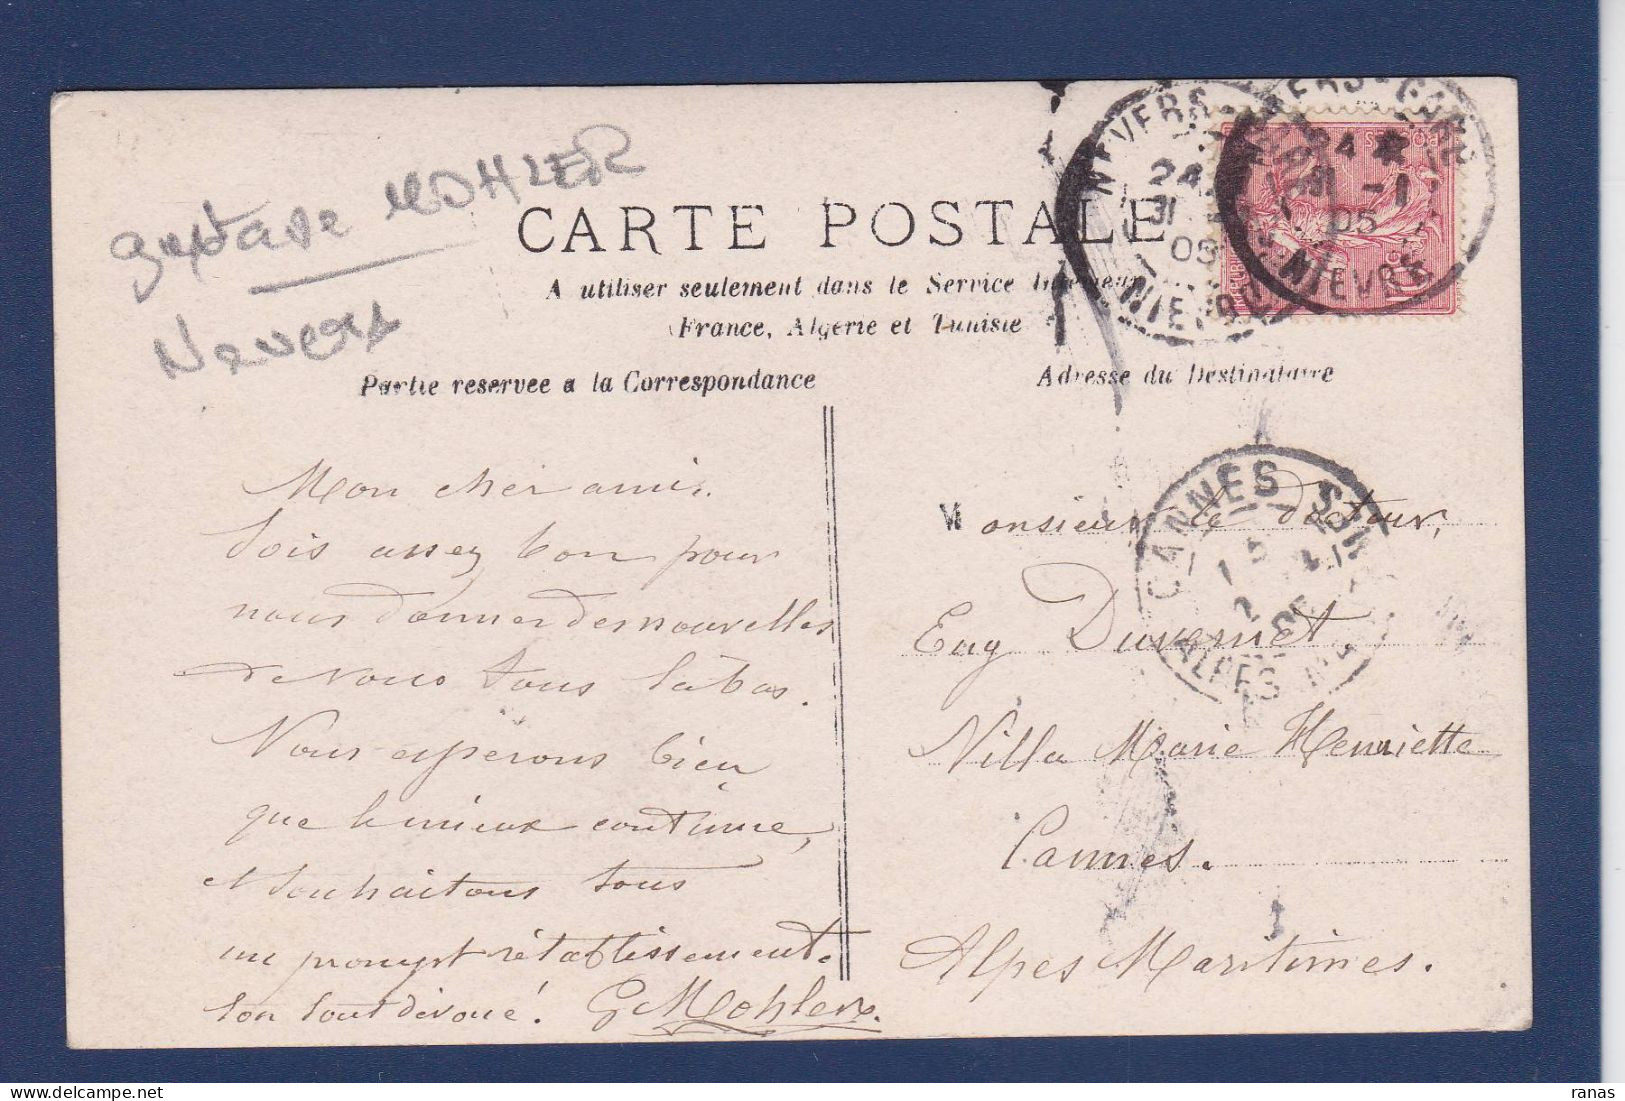 Gustave MOHLER
Nevers
CARTE POSTALE
A utiliser seulement dans le Service Intérieur
(France, Algérie et Tunisie
Partie réservée a la Correspondance
Adresse du Destinataire
NEVERS-GARE
24
31 -1
05
NIEVRE
NEVERS-GARE
24
31 -1
05
NIEVRE
CANNES
1
2
05
ALPES
Mon cher ami.
Sois assez bon pour
nous donner des nouvelles
de vous tous là bas.
Nous espérons bien
que le mieux continue,
et souhaitons tous
un prompt rétablissement.
Ton tout dévoué! G Mohler.
Monsieur le docteur,
Eug Duvernet.
Villa Marie Henriette
Cannes.
Alpes Maritimes.
ranas